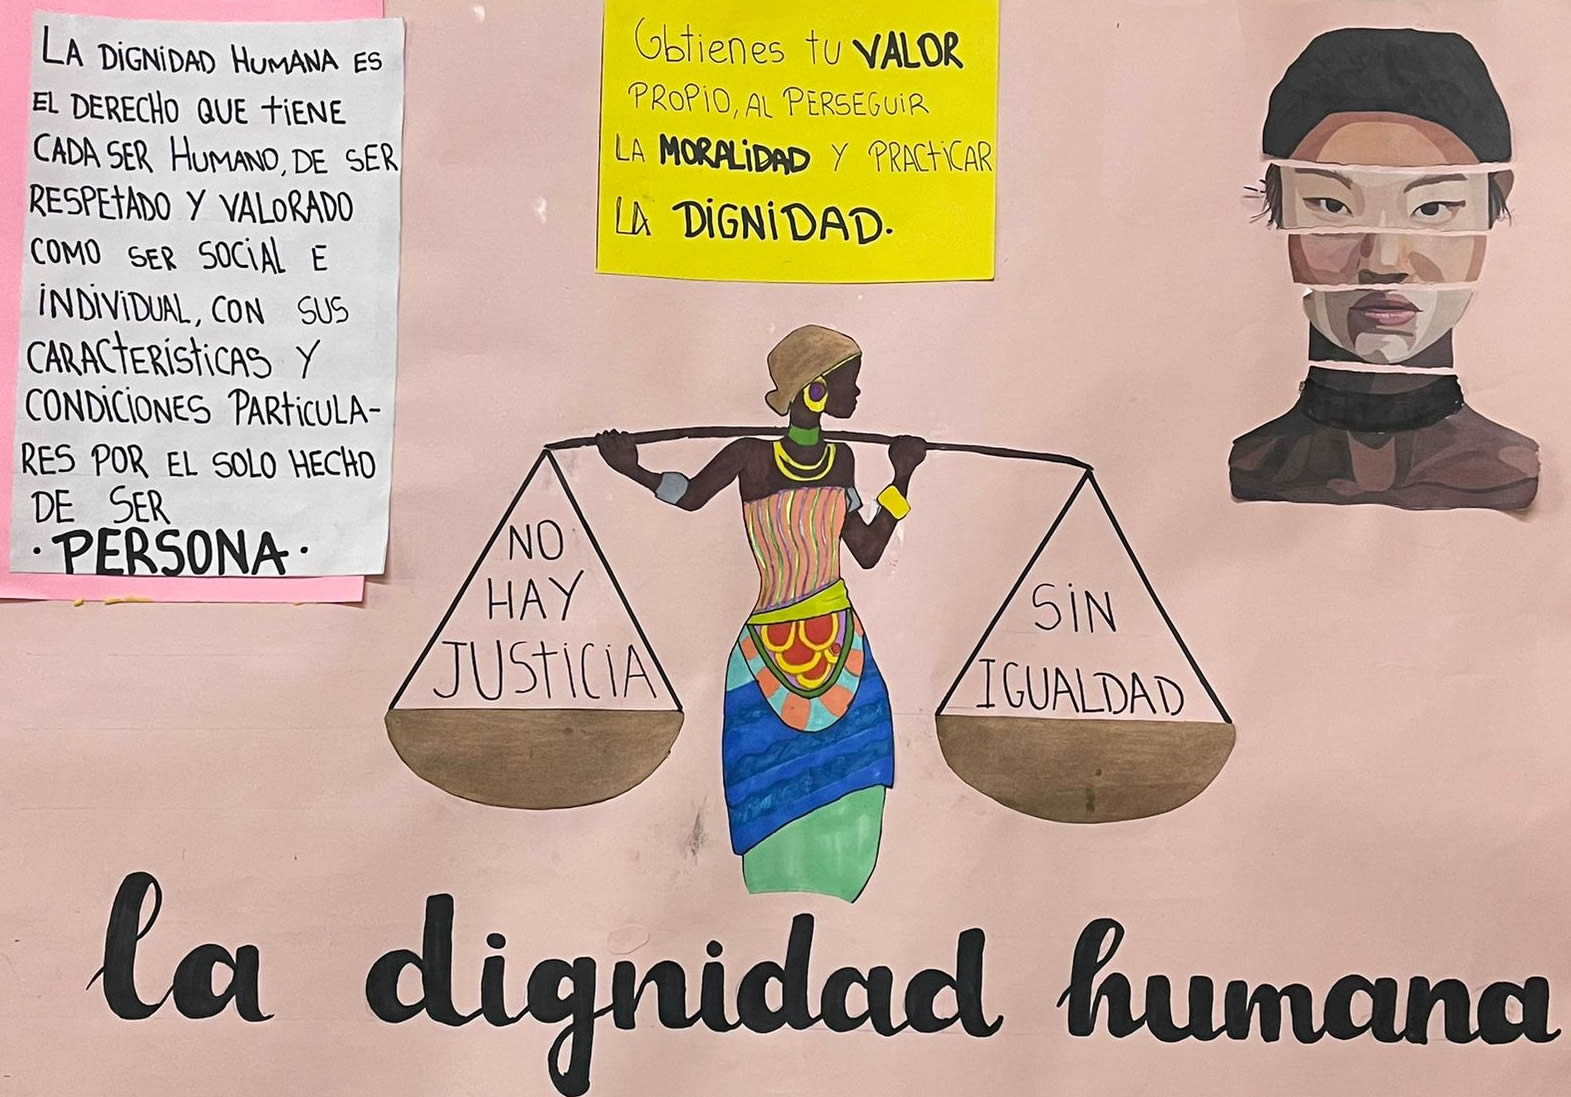 LA DIGNIDAD HUMANA ES
EL DERECHO QUE TIENE
CADA SER HUMANO, DE SER
RESPETADO Y VALORADO
COMO SER SOCIAL E
INDIVIDUAL, CON SUS
CARACTERÍSTICAS Y
CONDICIONES PARTICULA-
RES POR EL SOLO HECHO
DE SER
· PERSONA ·
Obtienes tu VALOR
PROPIO, AL PERSEGUIR
LA MORALIDAD Y PRACTICAR
LA DIGNIDAD.
NO
HAY
JUSTICIA
SIN
IGUALDAD
la dignidad humana